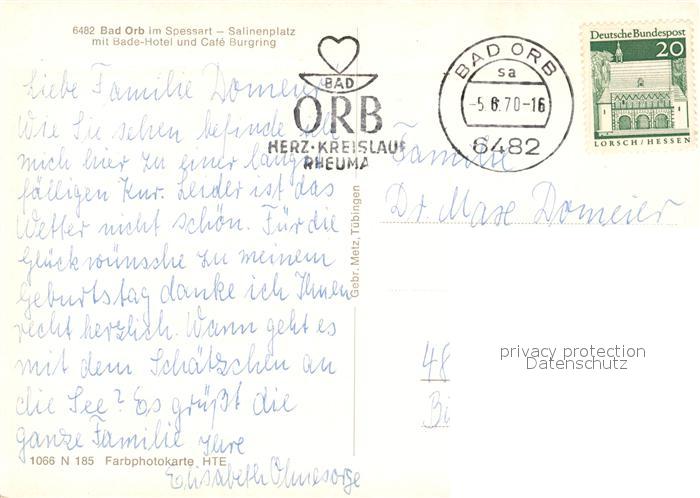 6482 Bad Orb im Spessart – Salinenplatz
mit Bade-Hotel und Café Burgring
Liebe Familie Domeier
Wie Sie sehen befinde ich
mich hier zu einer längst
fälligen Kur. Leider ist das
Wetter nicht schön. Für die
Glückwünsche zu meinem
Geburtstag danke ich Ihnen
recht herzlich. Wann geht es
mit dem Schätzchen an
die See? Es grüßt die
ganze Familie Ihre
Elisabeth Ohnesorge
1066 N 185 Farbphotokarte HTE
Gebr. Metz, Tübingen
BAD
ORB
HERZ·KREISLAUF
RHEUMA
BAD ORB
sa
-5.6.70-16
6482
Deutsche Bundespost
20
LORSCH/HESSEN
Familie
Dr. Max Domeier
48
Bi
privacy protection
Datenschutz